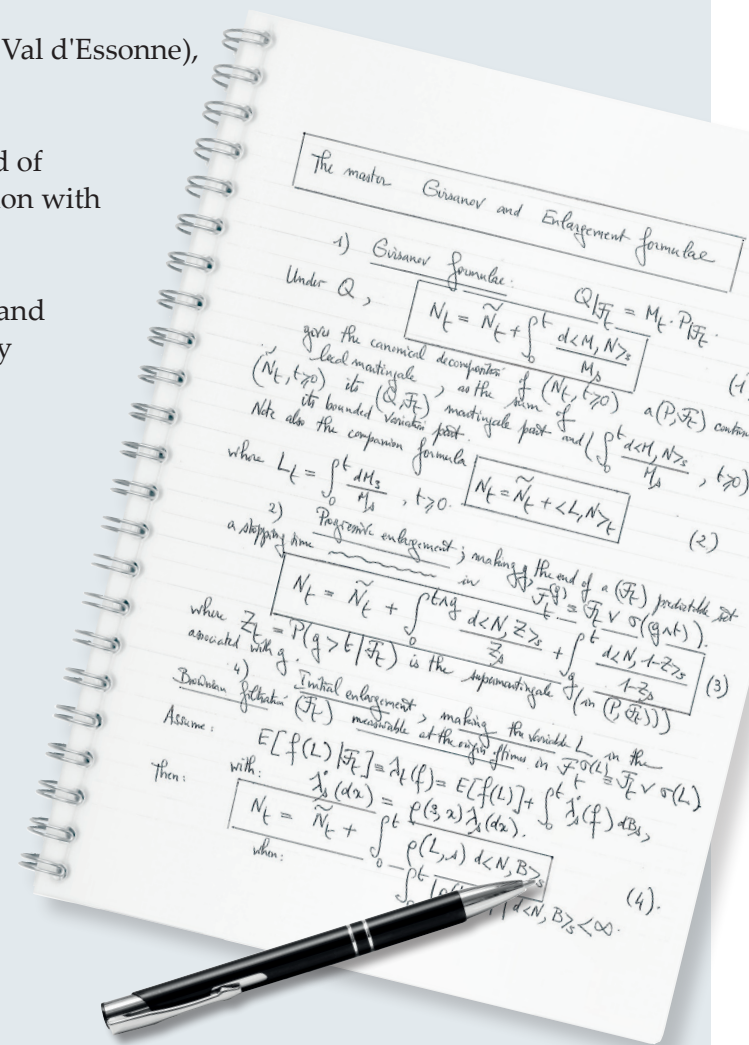 Val d'Essonne),
d of
ion with
and
y
The master Girsanov and Enlargement formulae
1) Girsanov formulae:
Under Q, Q|_{F_t} = M_t · P|_{F_t}.
N_t = Ñ_t + ∫_0^t d<M, N>_s / M_s (1)
gives the canonical decomposition of (N_t, t≥0) a (P, F_t) contin
local martingale, as the sum of
(Ñ_t, t≥0) its (Q, F_t) martingale part and (∫_0^t d<M, N>_s / M_s, t≥0)
its bounded variation part.
Note also the companion formula
N_t = Ñ_t + <L, N>_t (2)
where L_t = ∫_0^t dM_s / M_s, t≥0.
2) Progressive enlargement; making g, the end of a (F_t) predictable set
a stopping time in F_t^{(g)} = F_t ∨ σ(g∧t)).
N_t = Ñ_t + ∫_0^{t∧g} d<N, Z>_s / Z_s + ∫_g^t d<N, 1-Z>_s / 1-Z_s (3)
where Z_t = P(g > t | F_t) is the supermartingale (in (P, (F_t)))
associated with g.
4) Initial enlargement, making the variable L in the
Brownian filtration (F_t) measurable at the origin of times in F_t^{σ(L)} = F_t ∨ σ(L)
Assume: E[f(L) | F_t] ≡ λ_t(f) = E[f(L)] + ∫_0^t λ̇_s(f) dB_s,
with: λ̇_s(dx) = ρ(s, x) λ_s(dx).
Then: N_t = Ñ_t + ∫_0^t ρ(L, s) d<N, B>_s (4).
when: ∫_0^t | d<N, B>_s < ∞.